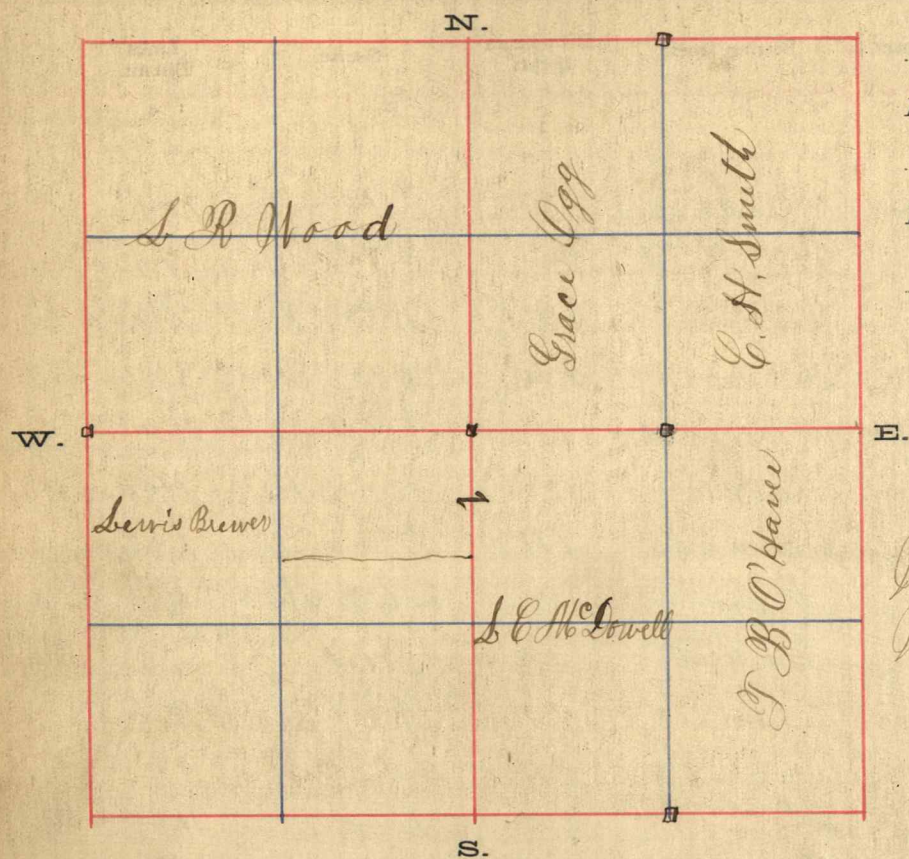 N.
S R Wood
Grace Ogg
C. H. Smith
W.
E.
Lewis Brewer
S E McDowell
T B O'Haver
S.